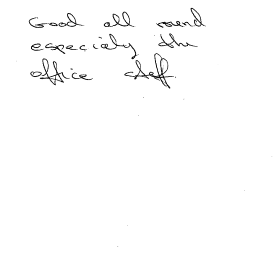 Good all round
especially the
office staff.